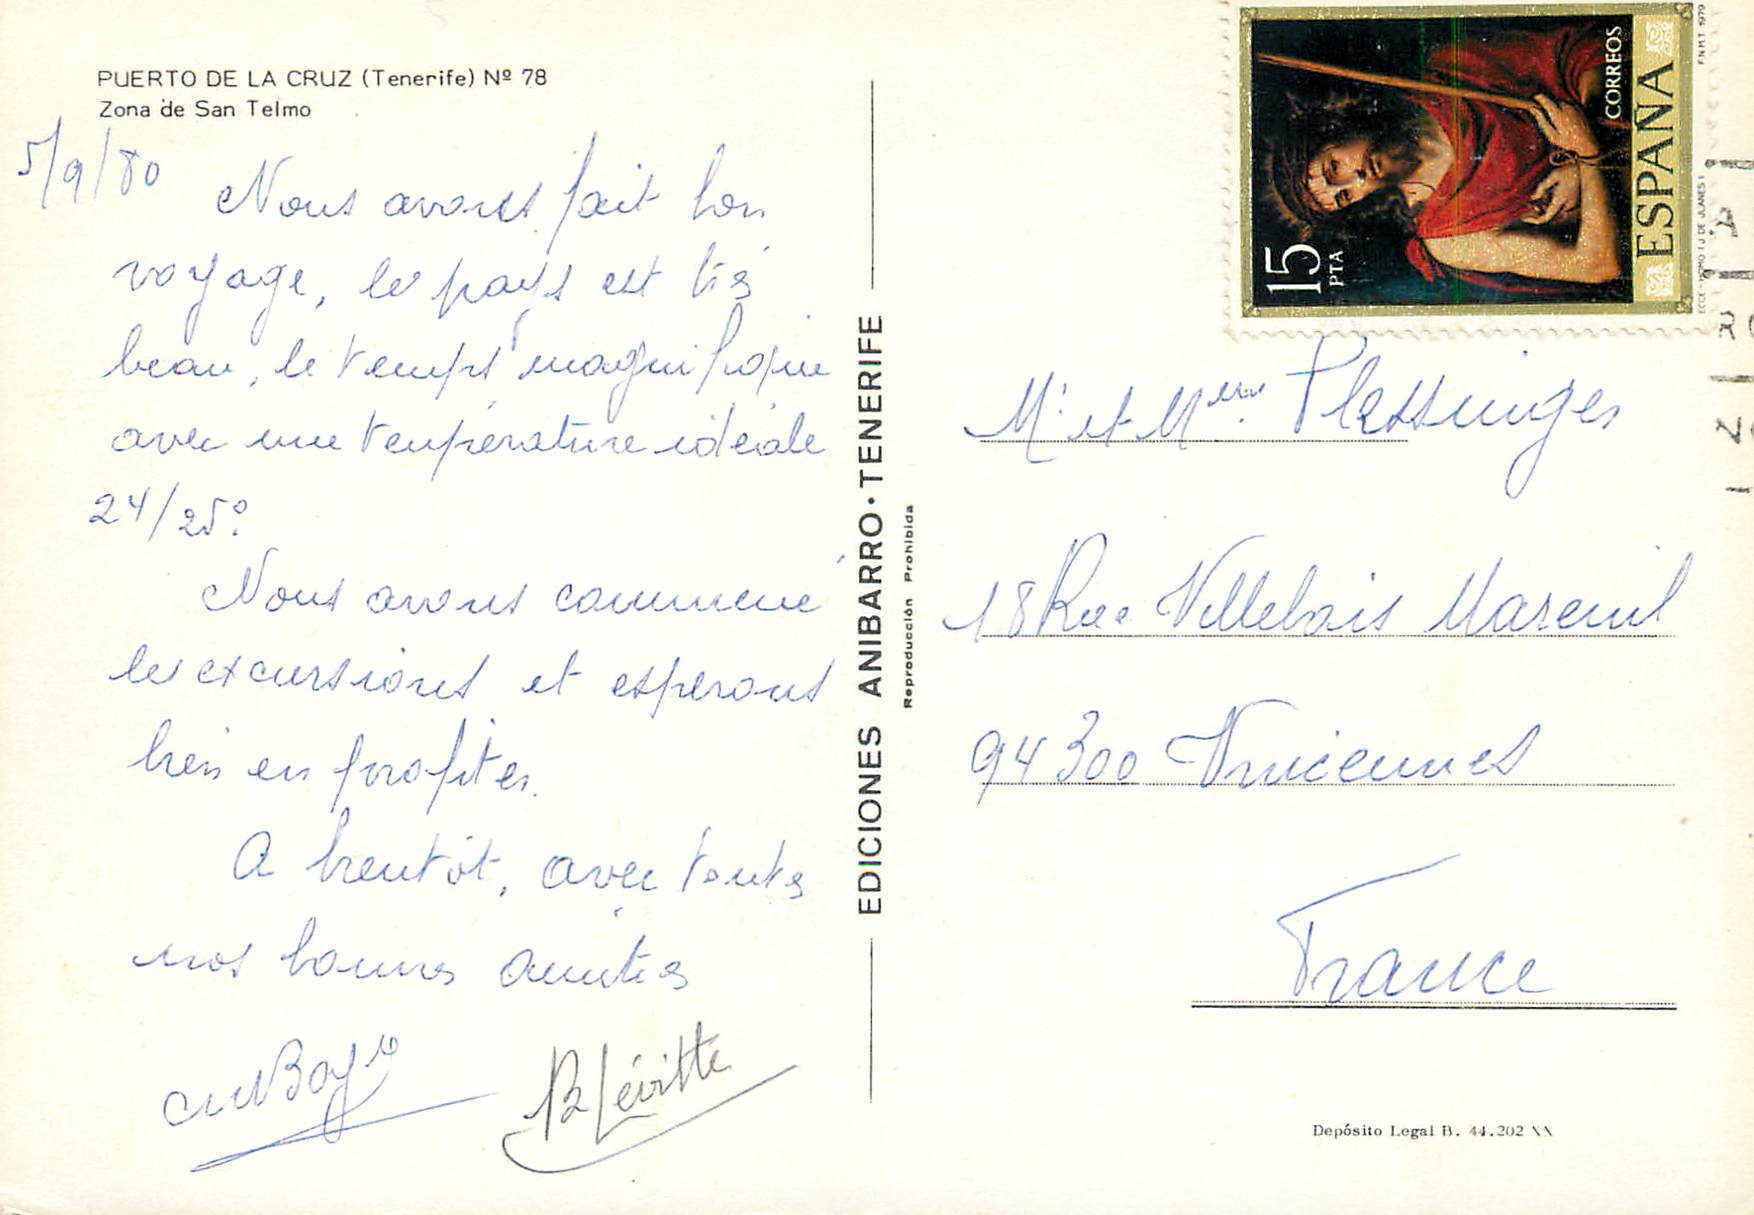 PUERTO DE LA CRUZ (Tenerife) Nº 78
Zona de San Telmo
5/9/80
Nous avons fait bon
voyage, le pays est très
beau, le temps magnifique
avec une température idéale
24/25°.
Nous avons commencé
les excursions et espérons
bien en profiter.
A bientôt, avec toutes
nos bonnes amitiés
B Lévitte
EDICIONES ANIBARRO · TENERIFE
Reproducción Prohibida
15 PTA
CORREOS
ESPAÑA
F.N.M.T. 1979
ECCE-HOMO (J DE JUANES)
Mr et Mme Plessinges
18 Rue Villebois Mareuil
94300 Vincennes
France
Depósito Legal B. 44.202 XX